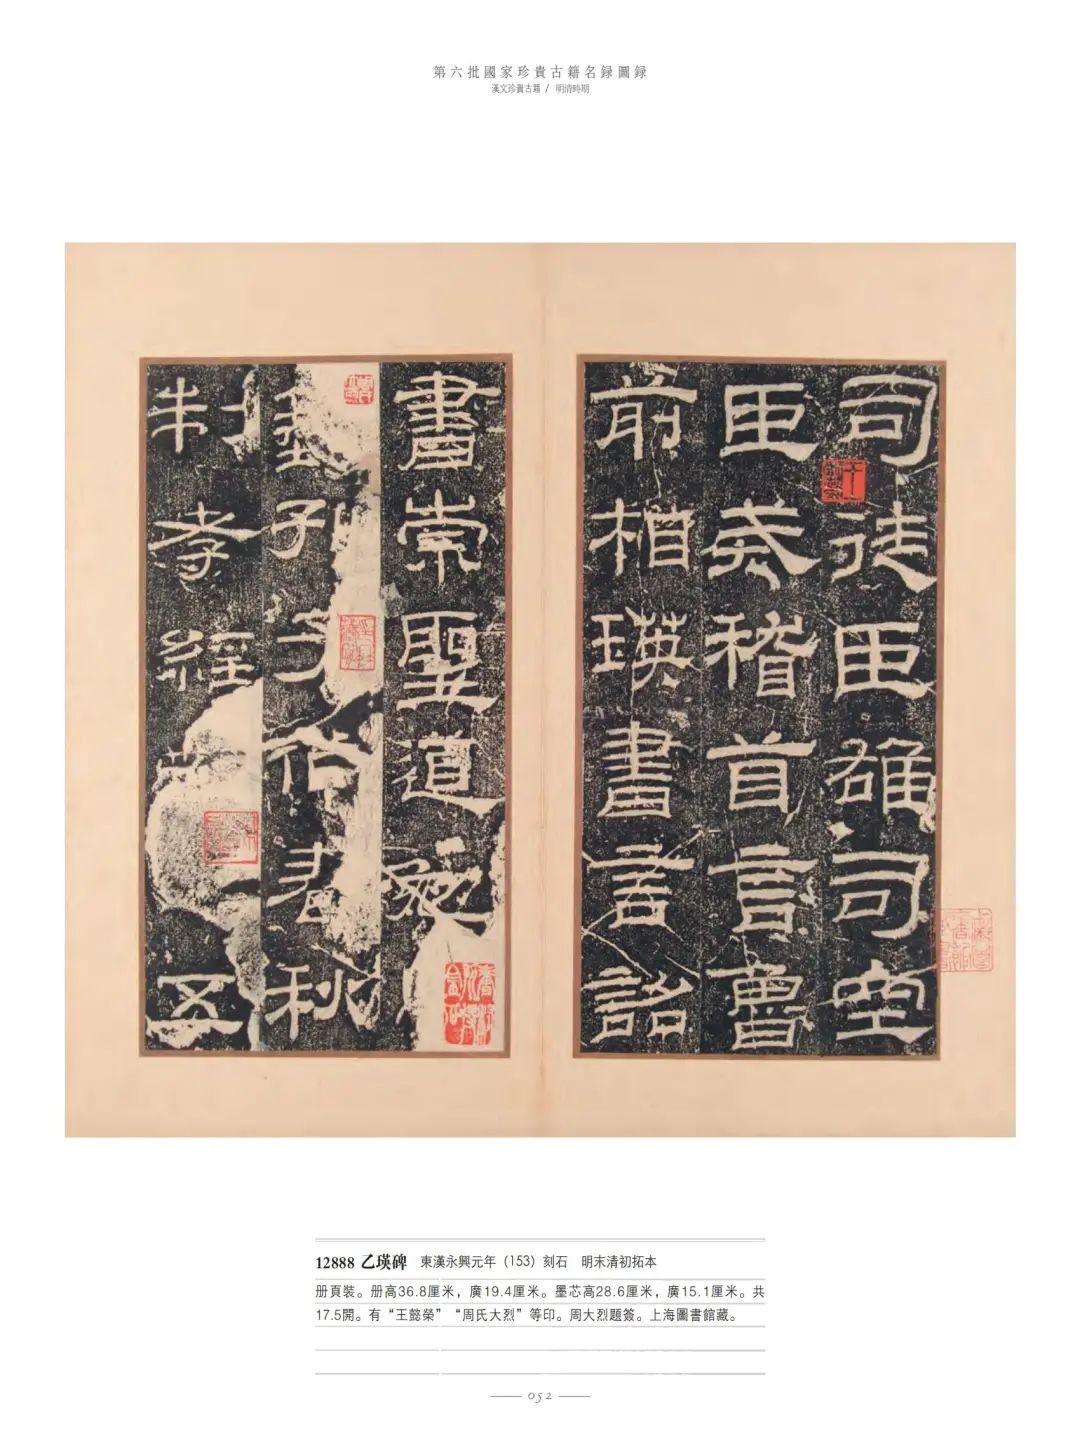 第六批國家珍貴古籍名録圖録
漢文珍貴古籍 / 明清時期
司徒臣雄司空
臣戒稽首言魯
前相瑛書言詔
書崇聖道勉
孔子作春秋
制孝經五
12888 乙瑛碑 東漢永興元年（153）刻石 明末清初拓本
册頁裝。册高36.8厘米，廣19.4厘米。墨芯高28.6厘米，廣15.1厘米。共
17.5開。有“王懿榮”“周氏大烈”等印。周大烈題簽。上海圖書館藏。
052